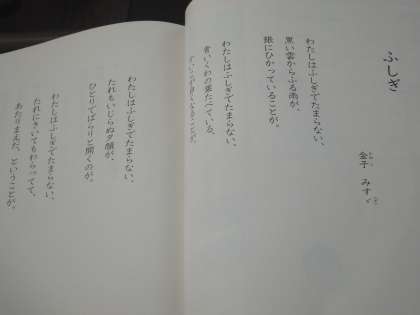 ふしぎ
金子 みすゞ
わたしはふしぎでたまらない、
黒い雲からふる雨が、
銀にひかっていることが。
わたしはふしぎでたまらない、
青いくわの葉たべている、
白くなることが。
わたしはふしぎでたまらない、
たれもいじらぬ夕顔が、
ひとりでぱらりと開くのが。
わたしはふしぎでたまらない、
たれにきいてもわらってて、
あたりまえだ、ということが。